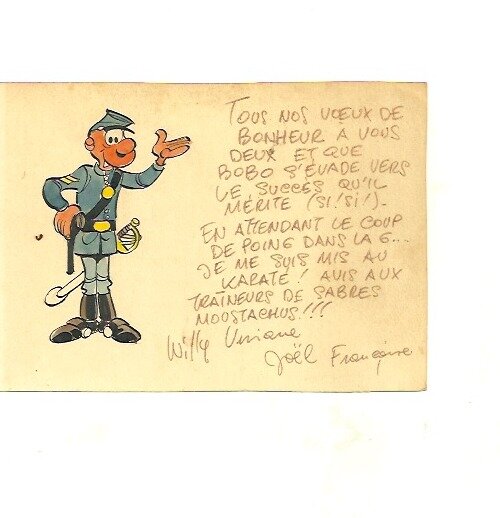 TOUS NOS VŒUX DE
BONHEUR A VOUS
DEUX ET QUE
BOBO S'EVADE VERS
LE SUCCES QU'IL
MÉRITE (SI! SI!).
EN ATTENDANT LE COUP
DE POING DANS LA G...
JE ME SUIS MIS AU
KARATE! AVIS AUX
TRAÎNEURS DE SABRES
MOOSTACHUS!!!
Willy Viviane
Joël Françoise